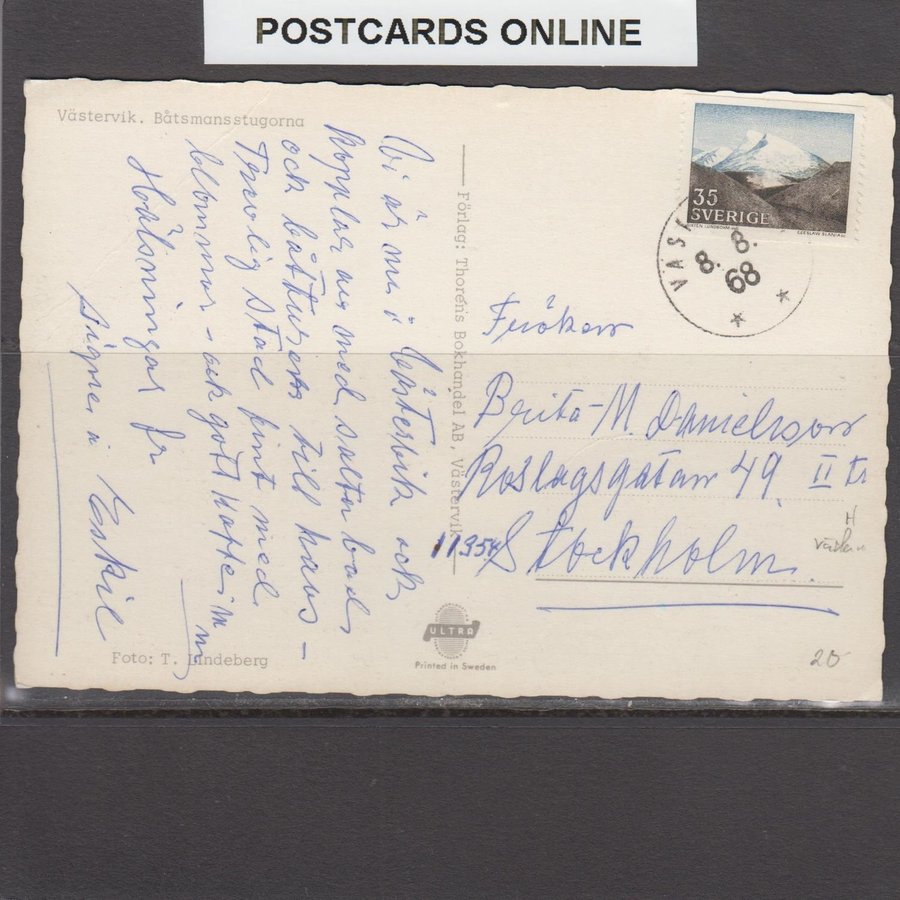 POSTCARDS ONLINE
Västervik. Båtsmansstugorna
Vi är nu i Västervik och
kopplar av med salta bad
och båtturer till havs –
Trevlig stad fint med
blommor – och gott kaffe
Hälsningar fr
Signe o Eskil
Foto: T. Lindeberg
Förlag: Thoréns Bokhandel AB, Västervik
ULTRA
Printed in Sweden
35
SVERIGE
CZESLAW SLANIA SC
8. 8.
68
Fröken
Brita-M. Danielsson
Roslagsgatan 49 II tr
11354 Stockholm
20